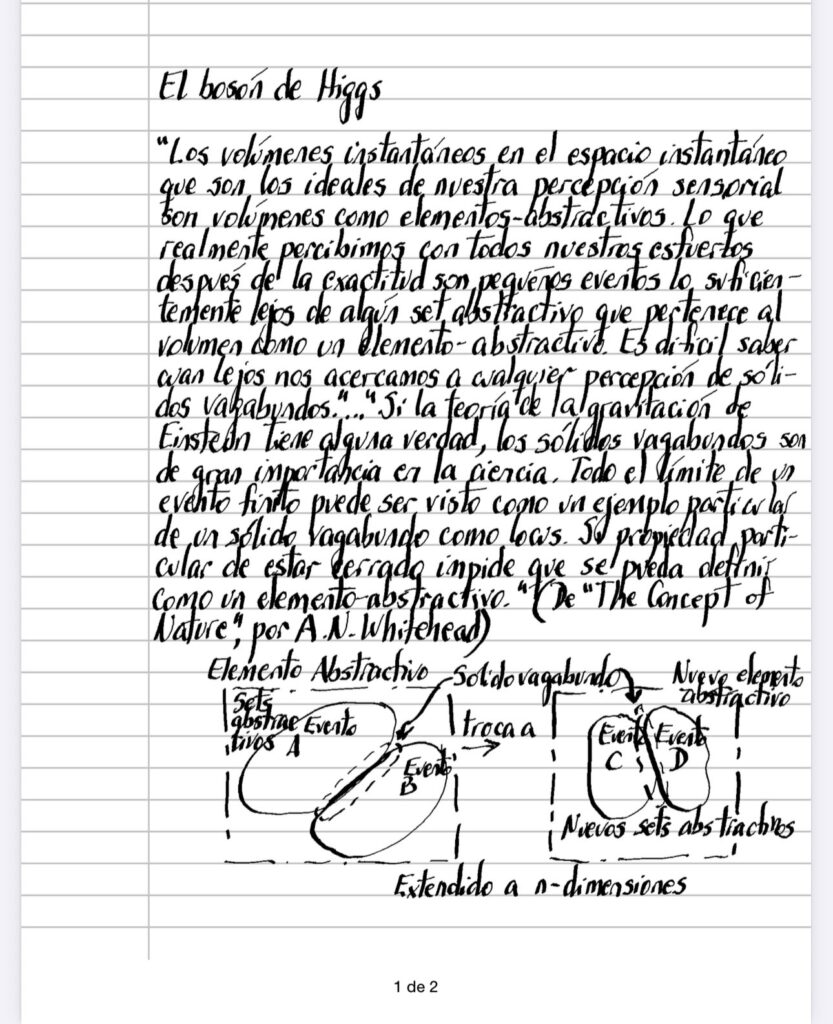 El bosón de Higgs
"Los volúmenes instantáneos en el espacio instantáneo
que son los ideales de nuestra percepción sensorial
son volúmenes como elementos-abstractivos. Lo que
realmente percibimos con todos nuestros esfuertos
después de la exactitud son pequeños eventos lo suficien-
temente lejos de algún set abstractivo que pertenece al
volumen como un elemento-abstractivo. Es difícil saber
cuan lejos nos acercamos a cualquier percepción de sóli-
dos vagabundos."..."Si la teoría de la gravitación de
Einstein tiene alguna verdad, los sólidos vagabundos son
de gran importancia en la ciencia. Todo el límite de un
evento finito puede ser visto como un ejemplo particular
de un sólido vagabundo como locus. Su propiedad parti-
cular de estar cerrado impide que se pueda definir
como un elemento-abstractivo." (De "The Concept of
Nature", por A.N. Whitehead)
Elemento Abstractivo Solido vagabundo Nuevo elemento
abstractivo
Sets
abstrac
tivos
Evento
A
Evento
B
troca a
Evento
C
Evento
D
Nuevos sets abstractivos
Extendido a n-dimensiones
1 de 2